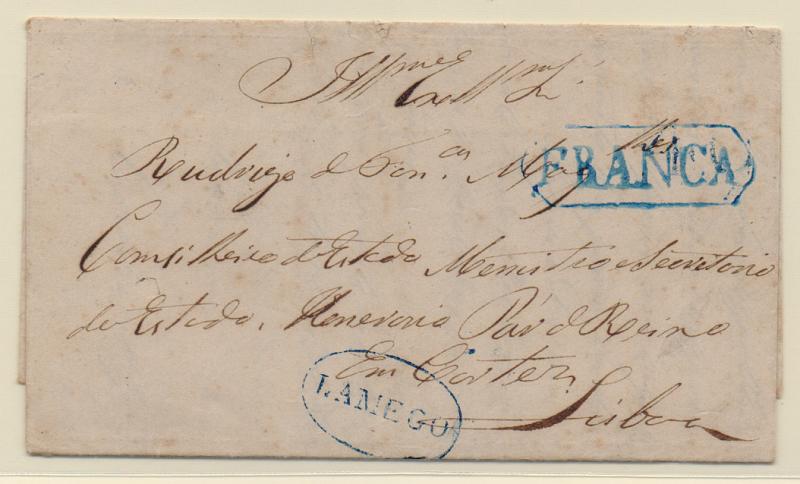 Illmo Exmo Snr
Rudrigo d Fonca Maglhes
FRANCA
Conselheiro do Estado Menistro e Secretario
do Estado, Honorario Par d Reino
Em Cortes,
LAMEGO
Lisboa